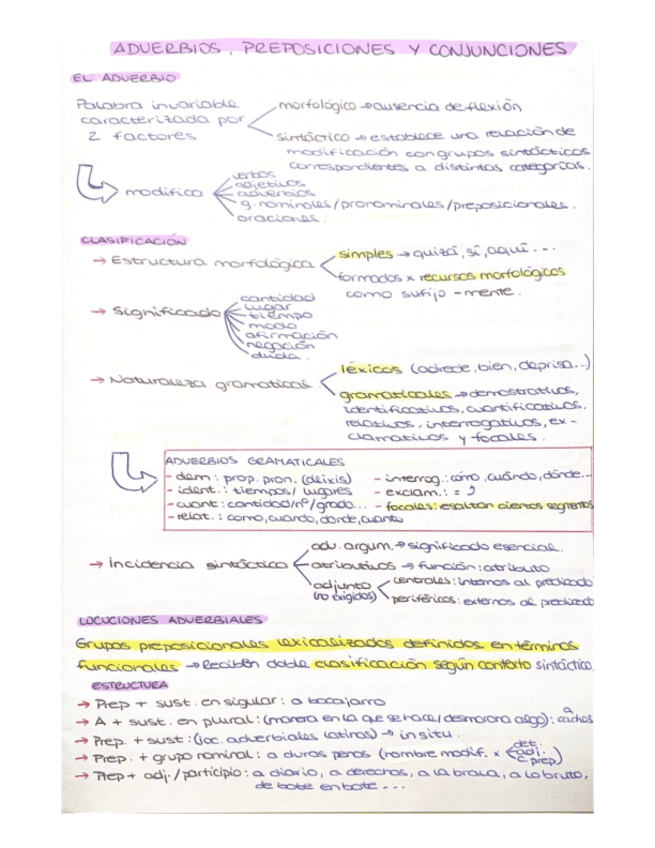 ADVERBIOS, PREPOSICIONES Y CONJUNCIONES
EL ADVERBIO
Palabra invariable
caracterizada por
2 factores
morfológico → ausencia de flexión
sintáctico → establece una relación de
modificación con grupos sintácticos
correspondientes a distintas categorías.
modifica
verbos
adjetivos
adverbios
g. nominales/pronominales/preposicionales.
oraciones.
CLASIFICACIÓN
→ Estructura morfológica
simples → quizá, sí, aquí...
formados x recursos morfológicos
como sufijo -mente.
→ Significado
cantidad
lugar
tiempo
modo
afirmación
negación
duda.
→ Naturaleza gramatical
léxicos (adrede, bien, deprisa...)
gramaticales → demostrativos,
identificativos, cuantificativos,
relativos, interrogativos, ex-
clamativos y focales.
ADVERBIOS GRAMATICALES
- dem: prop. pron. (deixis)
- ident.: tiempos/ lugares
- cuant: cantidad/nº/grado...
- relat.: como, cuando, donde, cuanto
- interrog.: cómo, cuándo, dónde...
- exclam.: = 
- focales: resaltan ciertos segmentos
→ Incidencia sintáctica
adv. argum. → significado esencial.
atributivos → función: atributo
adjunto
(no exigidos)
centrales: internos al predicado
periféricos: externos al predicad
LOCUCIONES ADVERBIALES
Grupos preposicionales lexicalizados definidos en términos
funcionales → Reciben doble clasificación según contexto sintáctico.
ESTRUCTURA
→ Prep + sust. en sigular: a bocajarro
→ A + sust. en plural: (manera en la que se hace/desmorona algo): a cachos
→ Prep. + sust: (loc. adverbiales latinas) → in situ.
→ Prep. + grupo nominal: a duras penas (nombre modif. x det. adj. c prep)
→ Prep + adj./participio: a diario, a derechas, a la brava, a lo bruto,
de bote en bote...